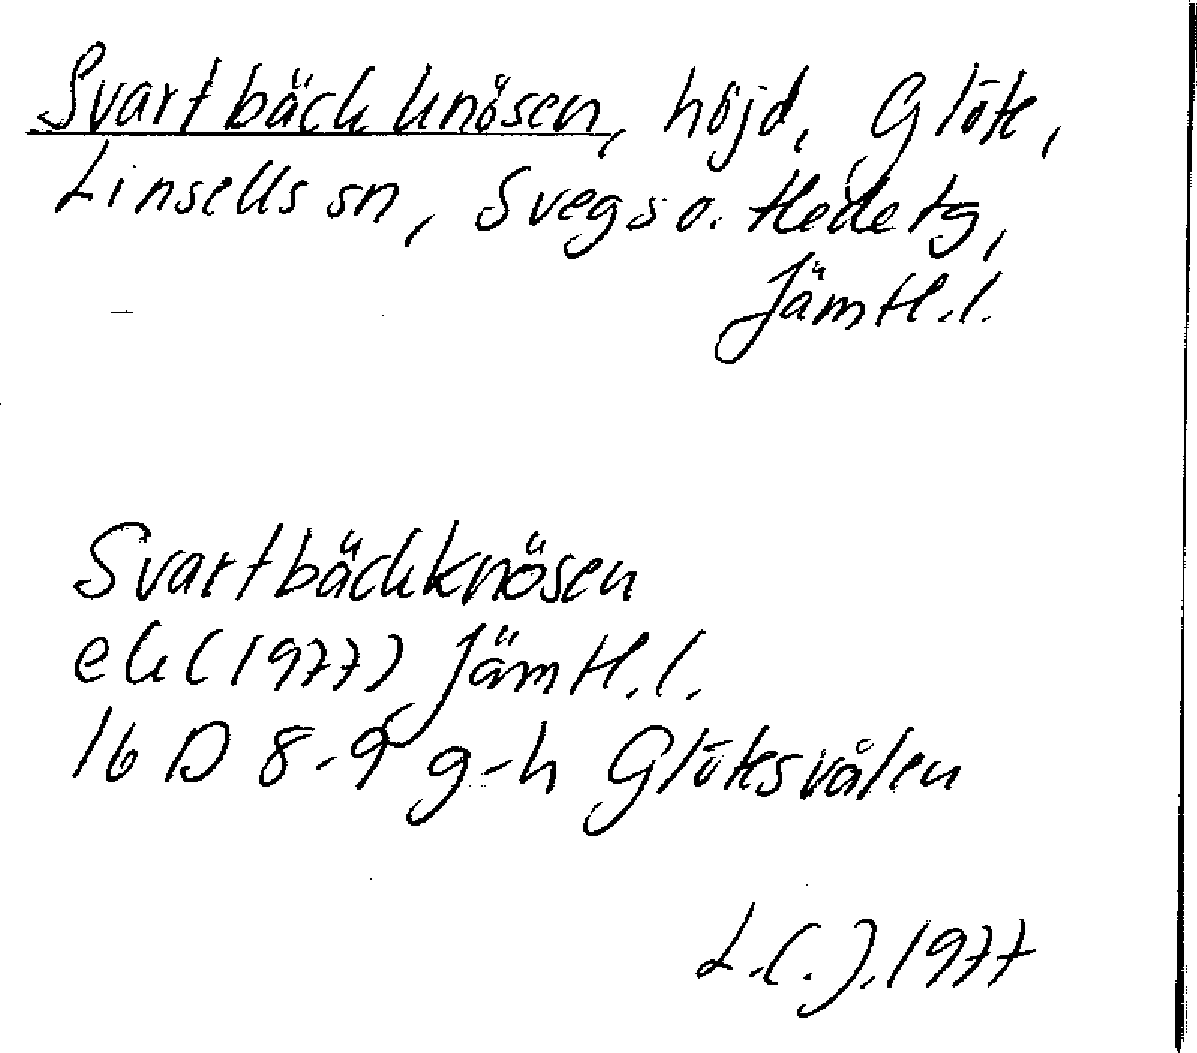 Svartbäckknösen, höjd, Glöte,
Linsells sn, Svegs o. Hede tg,
Jämtl. l.
Svartbäckknösen
ek (1977) Jämtl. l.
16 D 8-9 g-h Glöteksvålen
L.C.J. 1977